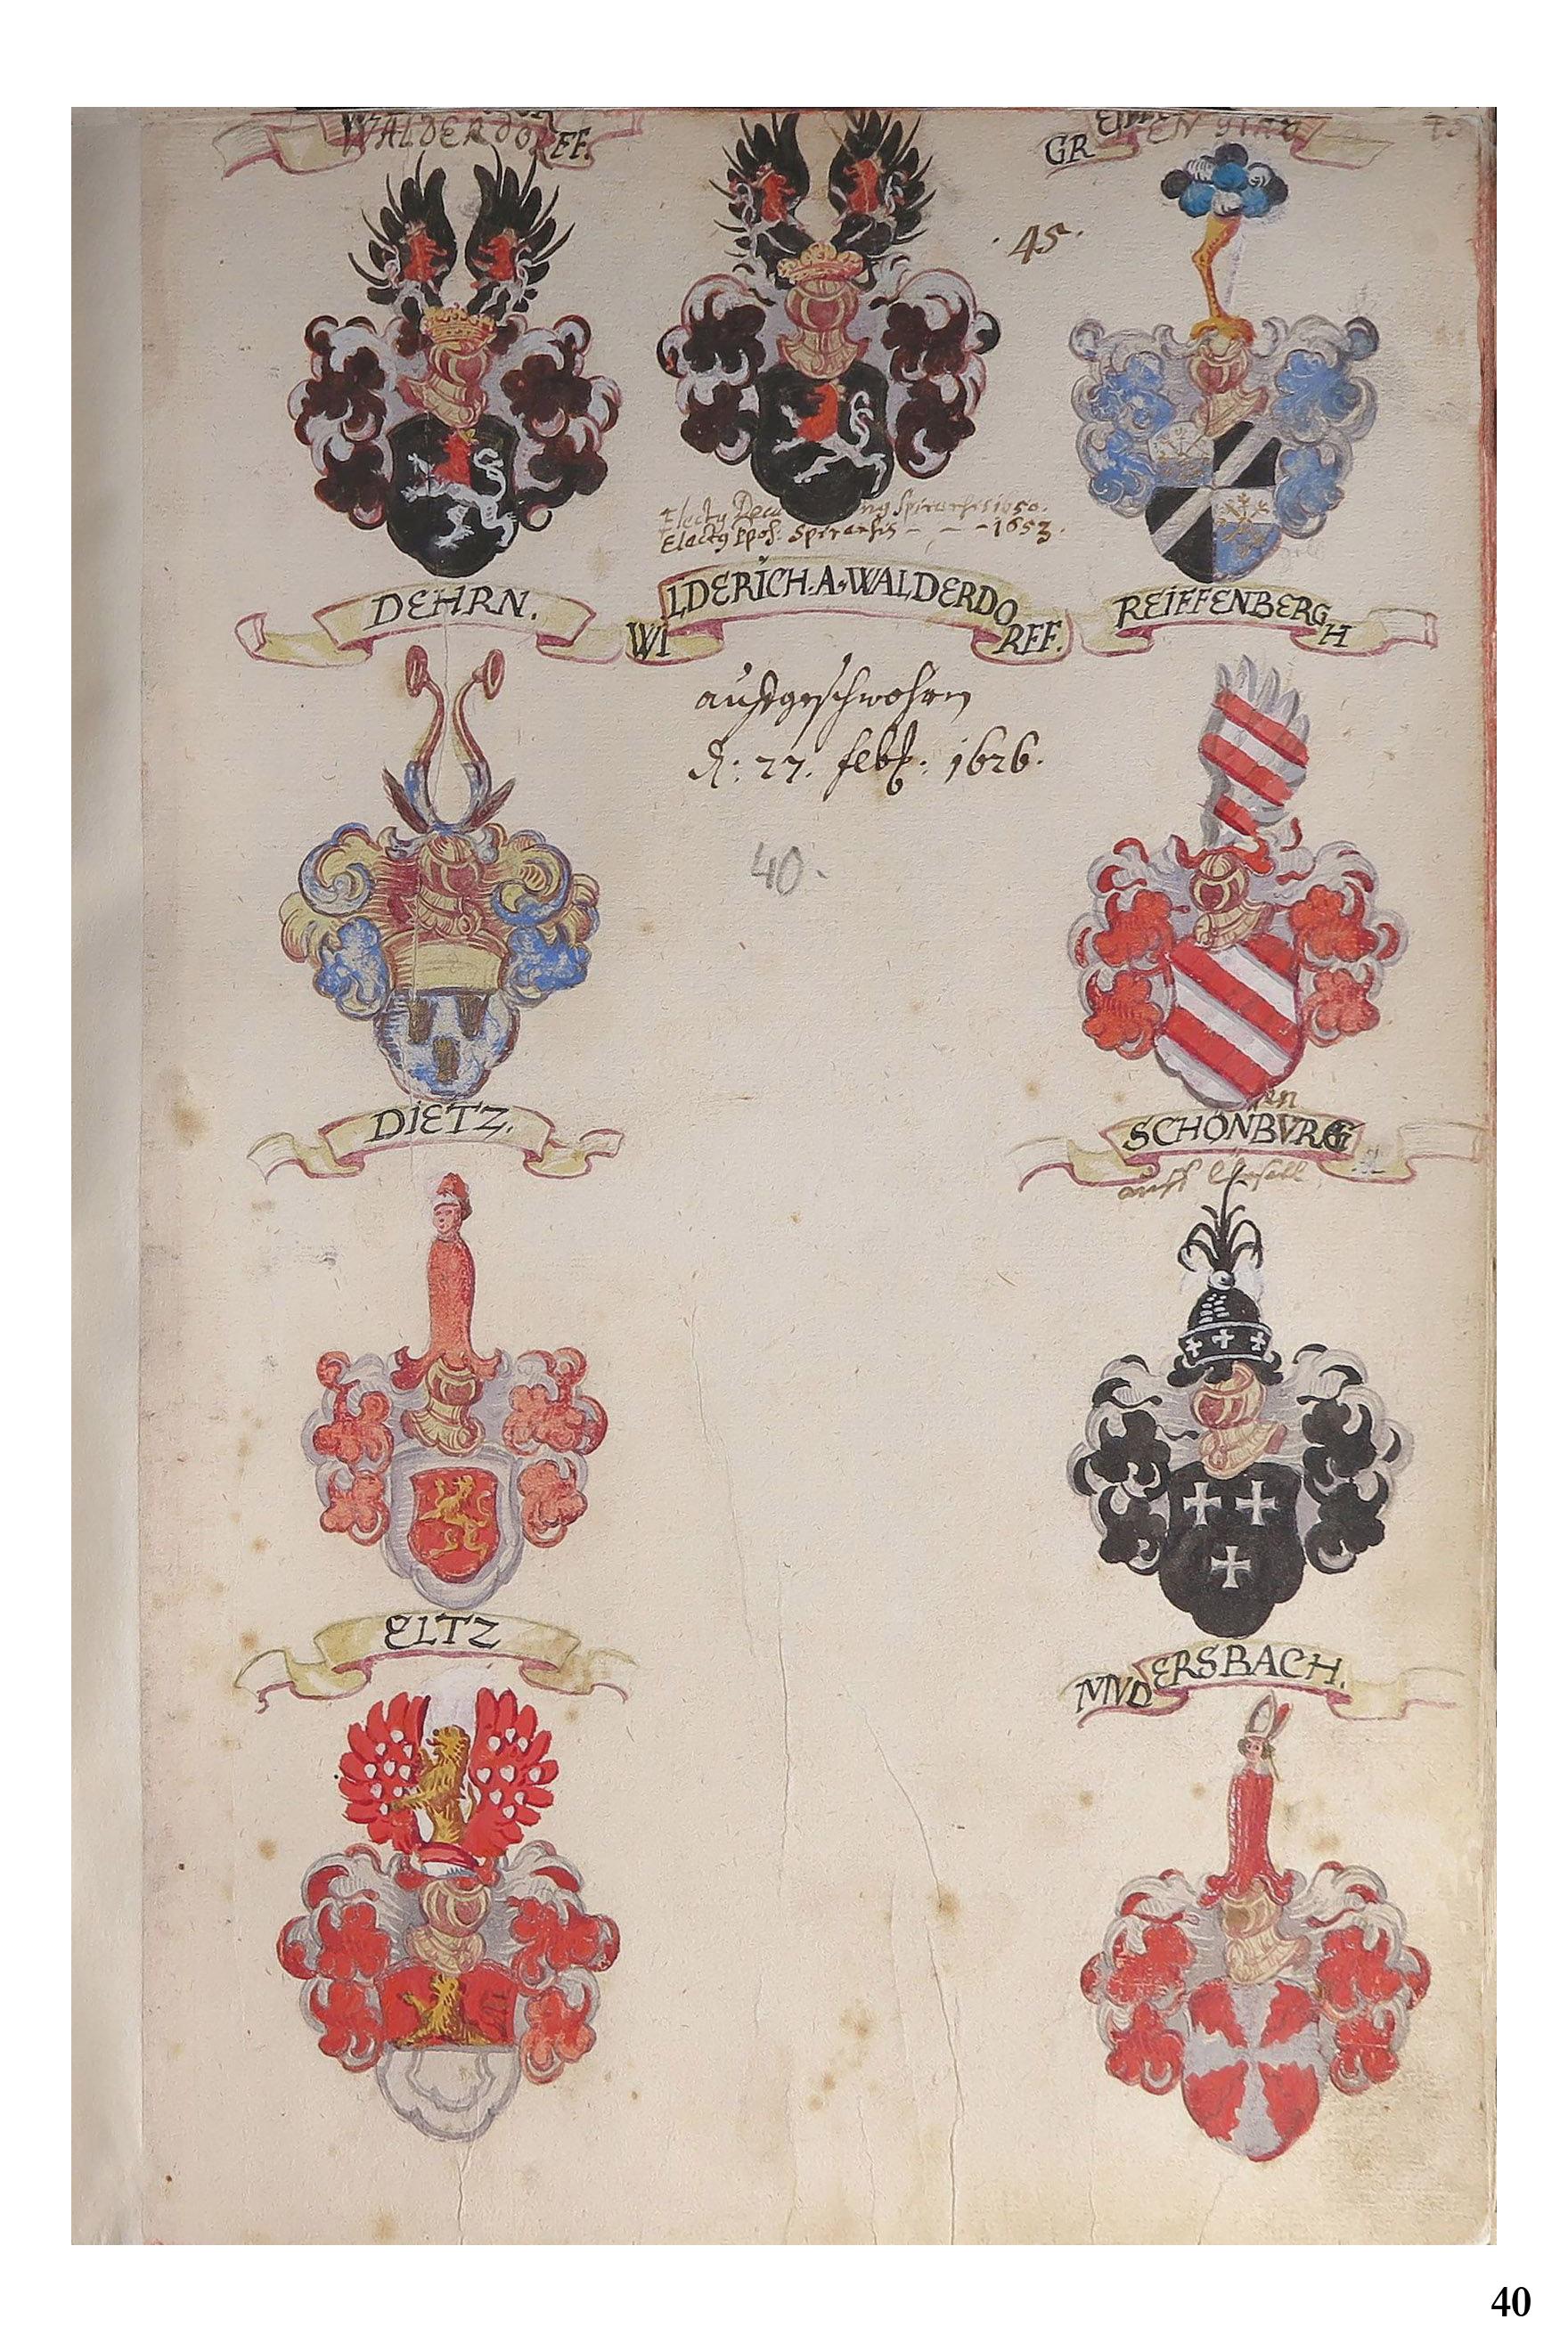 WALDERDORFF.
GREIFFEN
45.
Electg Spirensis 1650.
Electg Ppos: Spirensis - - -1653.
DEHRN.
WILDERICH·A·WALDERDORFF.
REIFFENBERGH
aufgeschwohren
d: 27. feb: 1626.
40.
DIETZ.
SCHÖNBVRG
ELTZ
MVDERSBACH.
40